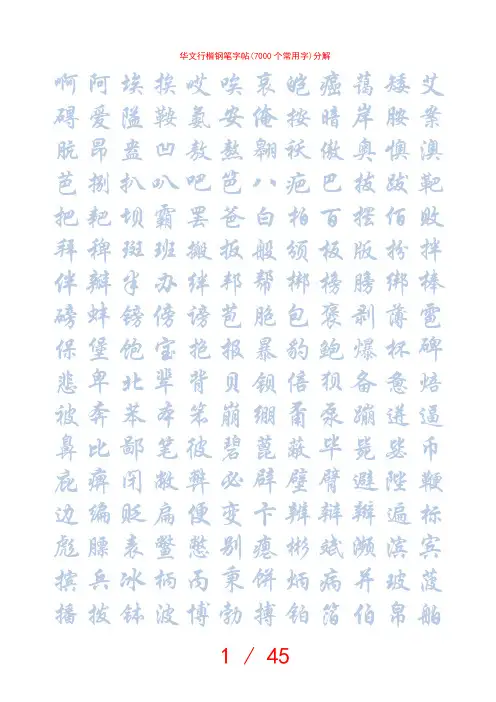 华文行楷钢笔字帖(7000个常用字)分解
啊阿埃挨哎唉哀皑癌蔼矮艾
碍爱隘鞍氨安俺按暗岸胺案
肮昂盎凹敖熬翱袄傲奥懊澳
芭捌扒叭吧笆八疤巴拔跋靶
把耙坝霸罢爸白柏百摆佰败
拜稗斑班搬扳般颁板版扮拌
伴瓣半办绊邦帮梆榜膀绑棒
磅蚌镑傍谤苞胞包褒剥薄雹
保堡饱宝抱报暴豹鲍爆杯碑
悲卑北辈背贝钡倍狈备惫焙
被奔苯本笨崩绷甭泵蹦迸逼
鼻比鄙笔彼碧蓖蔽毕毙毖币
庇痹闭敝弊必辟壁臂避陛鞭
边编贬扁便变卞辨辩辫遍标
彪膘表鳖憋别瘪彬斌濒滨宾
摈兵冰柄丙秉饼炳病并玻菠
播拨钵波博勃搏铂箔伯帛舶
1 / 45